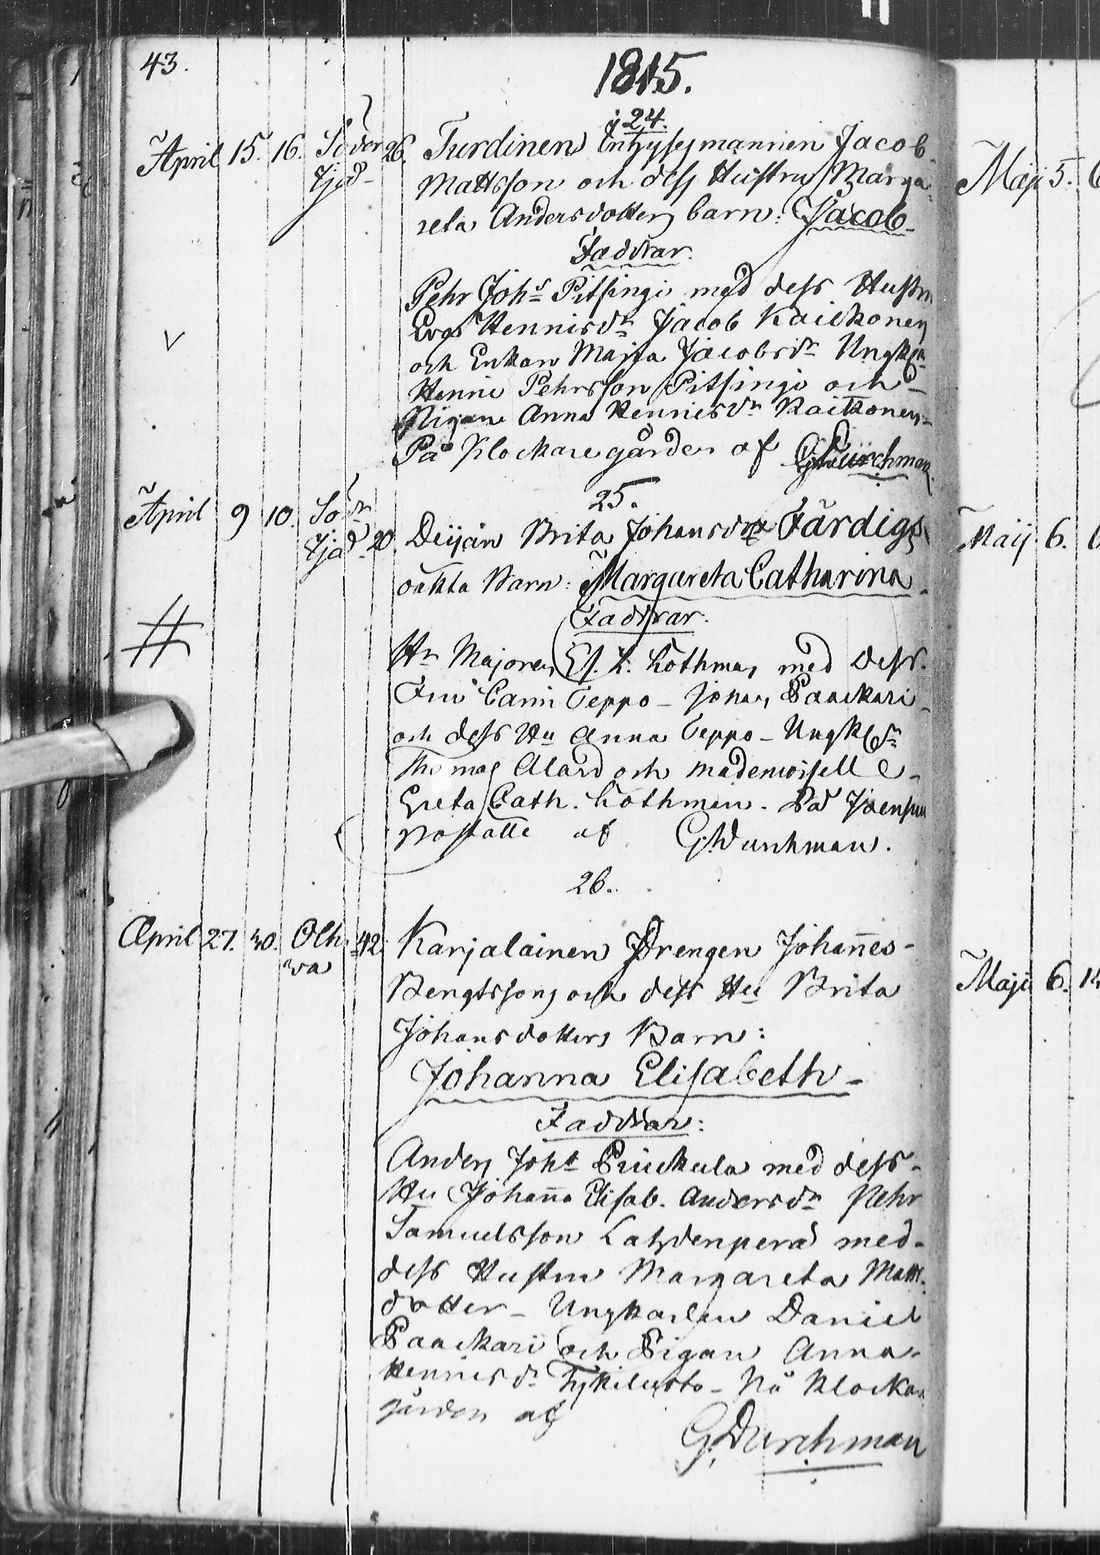 43.
1815.
24.
April 15. 16. Söder 26. Turdinen Inhysesmannen Jacob
Mattsson och dess Hustru Marga
reta Andersdotters barn: Jacob
Faddrar.
Pehr Johs Pitsingi med dess Hustru
Hennisdr Jacob Kaickonen
och Enkan Maria Jacobsdr Ungk
Henric Pehrsson Pitsingi och
Pigan Anna Hennisdr Kaickonen
På Klockaregården af GDurchman
25.
April 9 10. 20. Brita Johansdr Färdigs
oäkta Barn: Margareta Catharina
Faddrar.
Hr Majoren Lothman med dess
Fru Teppo - Johan Paackari
och dess Hu Anna Teppo - Ungk
Thomas Alard och Mademoisell
Greta Cath. Lothman. På Joensuu
af G.Durchman.
26.
April 27. 30. Olh 42. Karjalainen Drengen Johannes
va
Bengtssons och dess Hu Brita
Johansdotters Barn:
Johanna Elisabeth
Faddrar:
Anders Johs med dess
Hu Johanna Elisab. Andersdr Pehr
Samuelsson Lahdenperä med
dess Hustru Margareta Matts
dotter - Ungkarlen Daniel
Paackari och Pigan Anna
Hennisdr - På Klockare
gården af
G.Durchman
Maji 5. 6
Maij 6.
Maji 6. 14